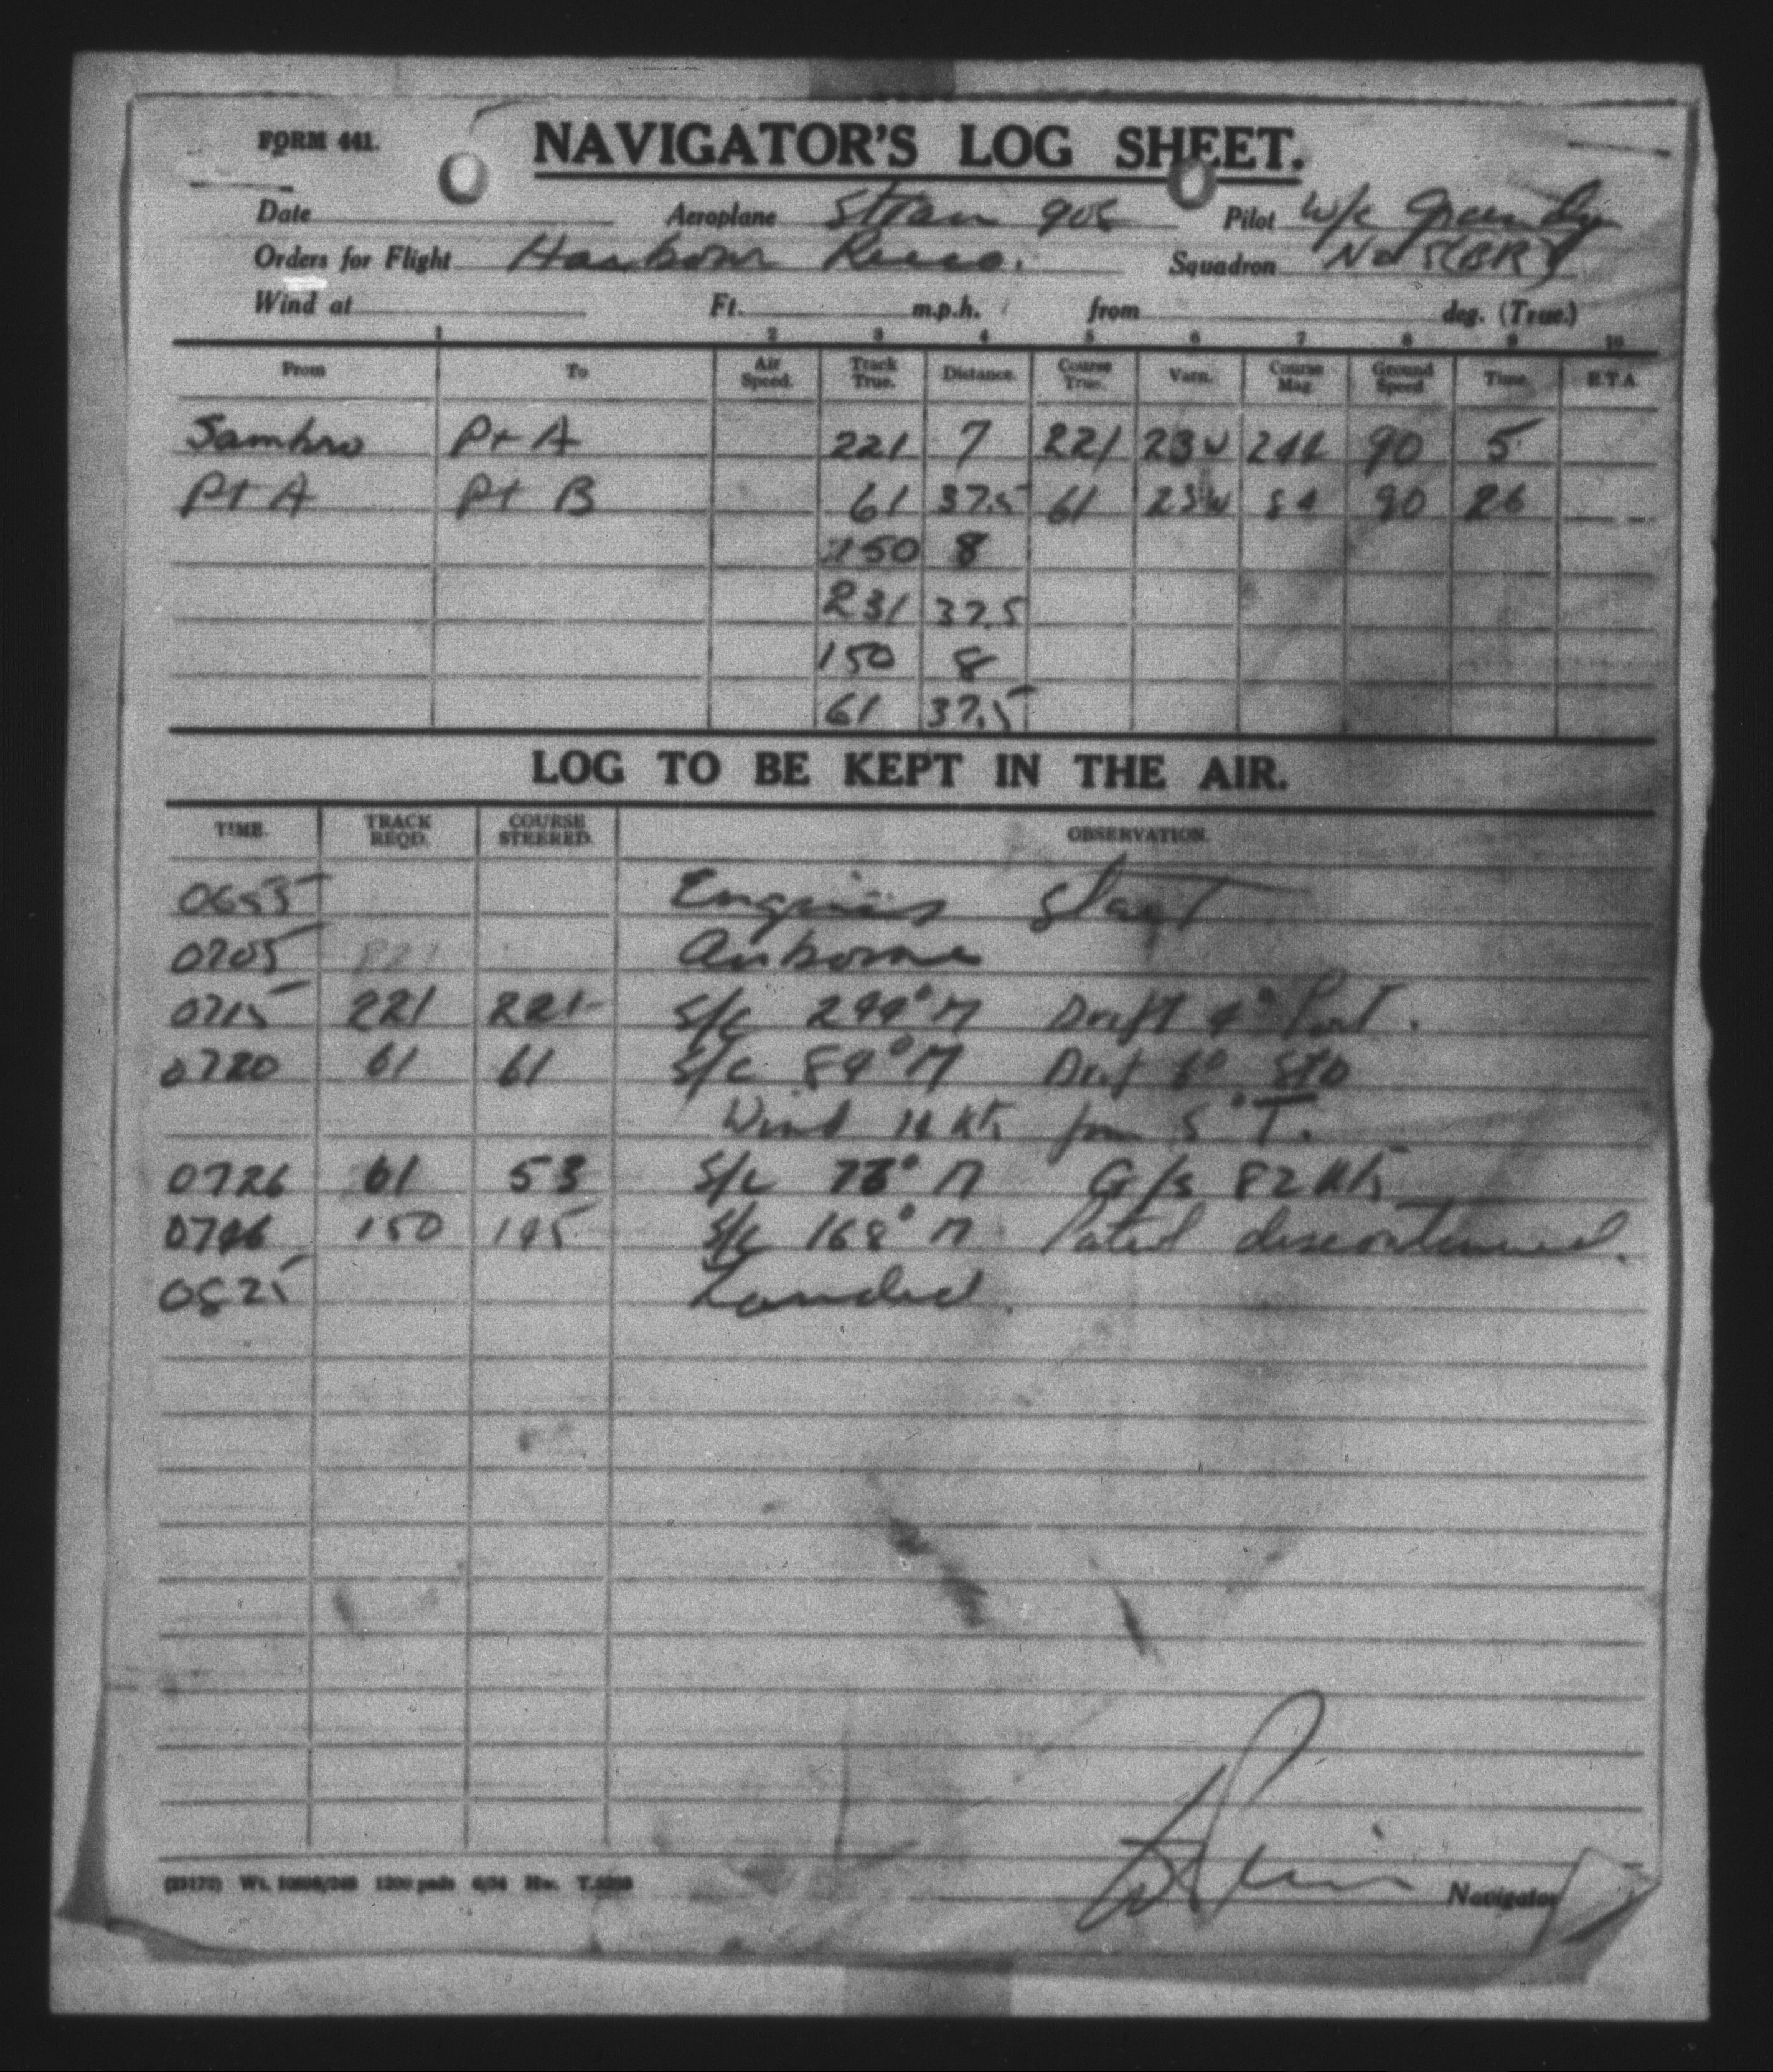 FORM 441.
NAVIGATOR'S LOG SHEET.
Date Aeroplane Stran 905 Pilot W/C
Orders for Flight Harbour Recco. Squadron No 5 (BR)
Wind at Ft. m.p.h. from deg. (True.)
1 2 3 4 5 6 7 8 9 10
From To Air Speed. Track True. Distance. Course True. Varn. Course Mag. Ground Speed Time. E.T.A.
Sambro Pt A 221 7 221 23W 244 90 5
Pt A Pt B 61 37.5 61 23W 84 90 26
150 8
231 37.5
150 8
61 37.5
LOG TO BE KEPT IN THE AIR.
TIME. TRACK REQD. COURSE STEERED. OBSERVATION.
0655 Engines Start
0705 Airborne
0715 221 221 S/C 244° M Drift 4° Port.
0720 61 61 S/C 84° M Drift 6° STD
Wind kts from 5° T.
0726 61 53 S/C 76° M G/S 82 kts
0746 150 145 S/C 168° M Patrol discontinued.
0825 Landed.
(23172) Wt. 1200 pads 6/34 Hw.
Navigator